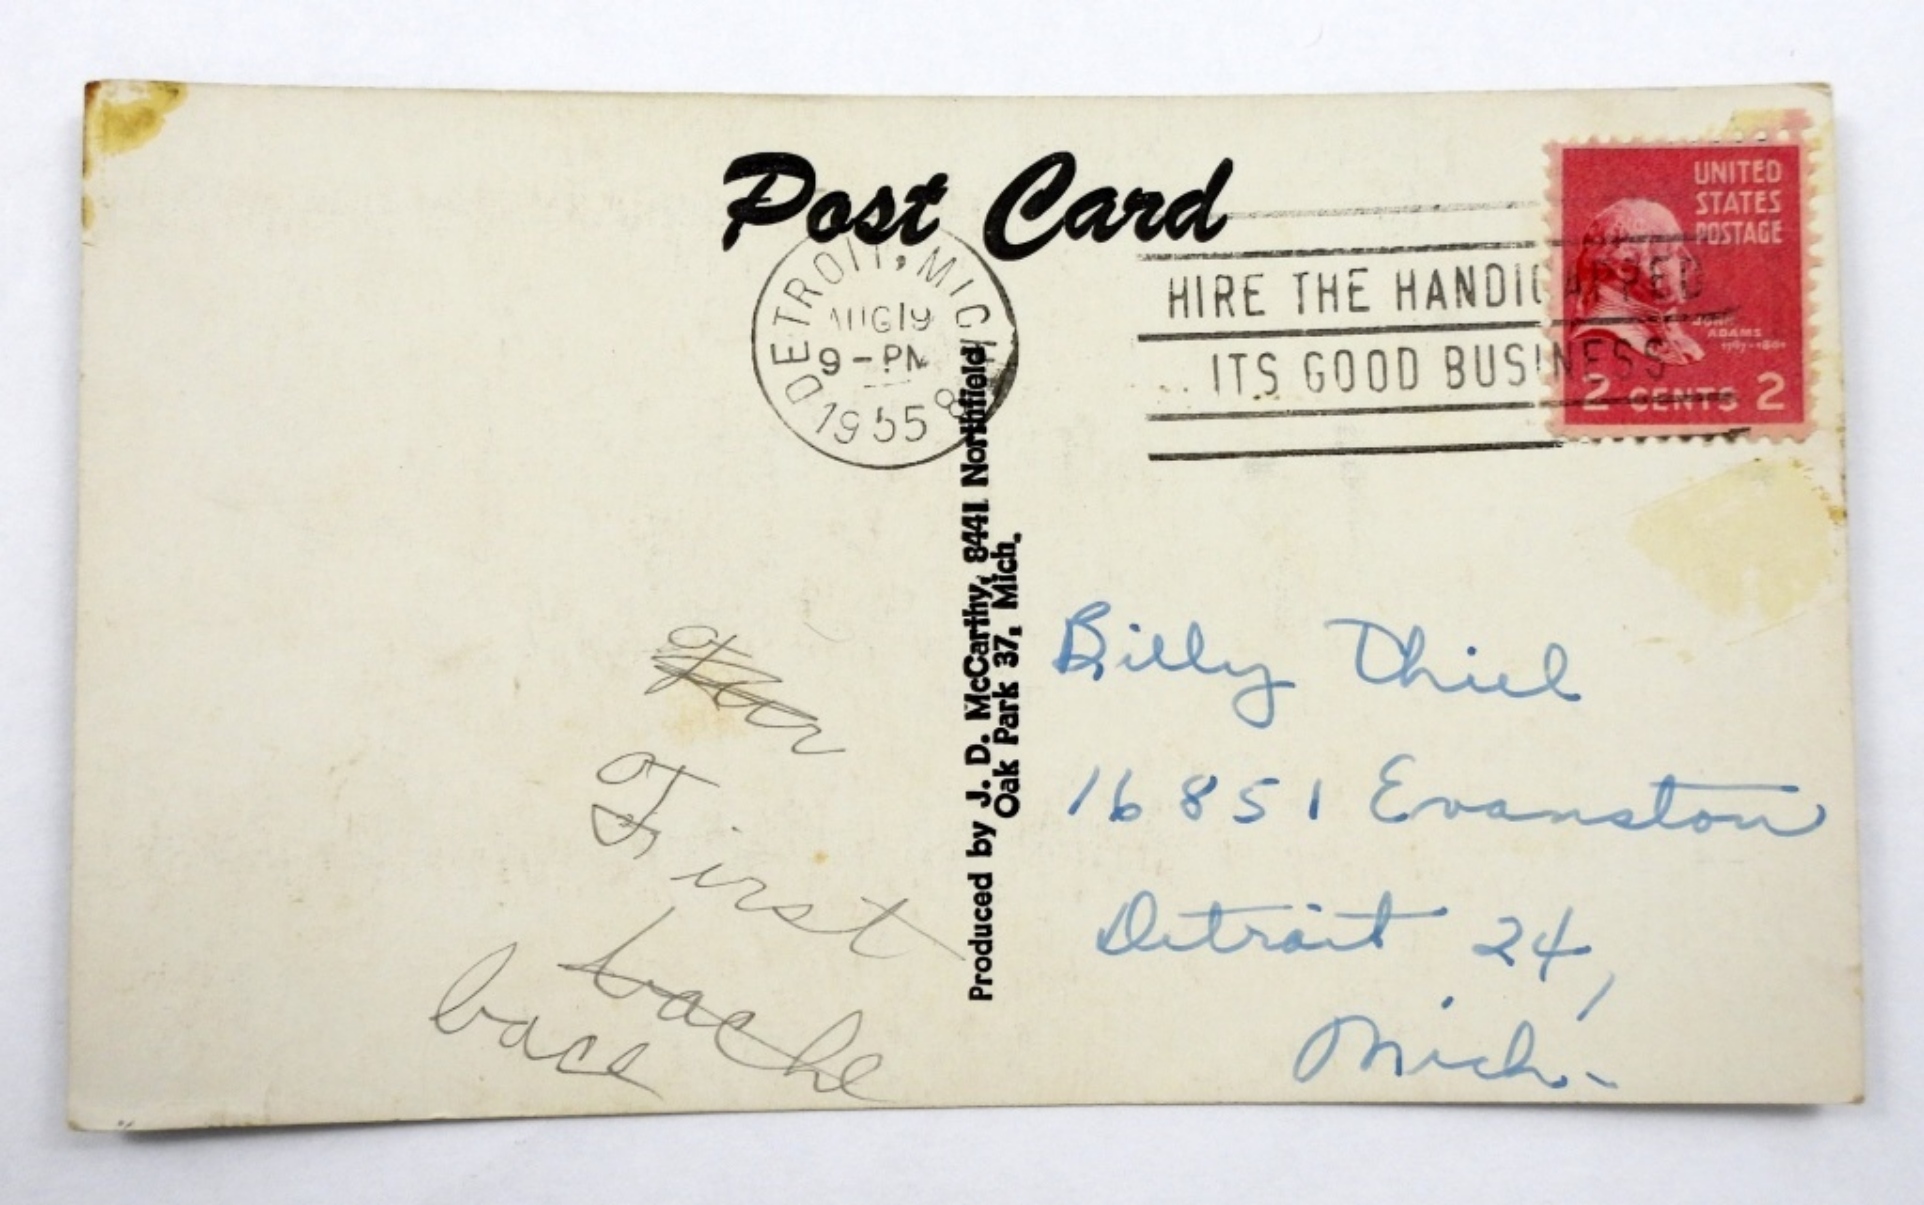 Post Card
DETROIT, MICH
AUG 19
9-PM
1955
8
HIRE THE HANDICAPPED
ITS GOOD BUSINESS
UNITED
STATES
POSTAGE
JOHN
ADAMS
1797-1801
2 CENTS 2
Produced by J. D. McCarthy, 8441 Northfield
Oak Park 37, Mich.
First
base
Billy Thiel
16851 Evanston
Detroit 24,
Mich.